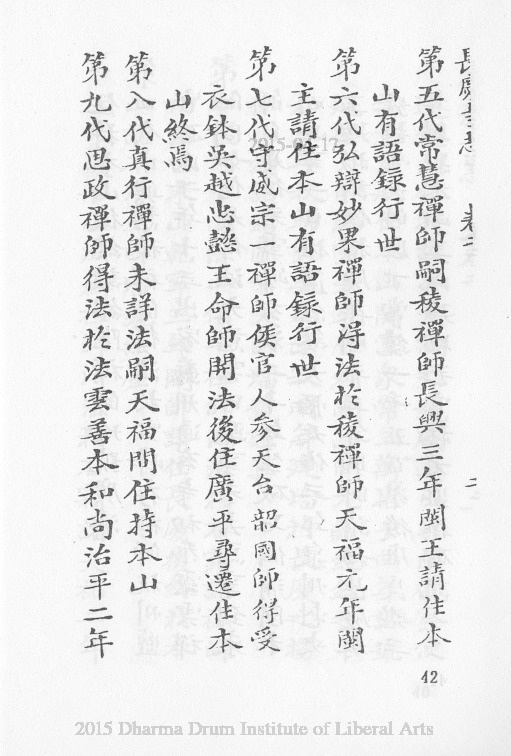 長慶寺志 卷二 二
第五代常慧禪師嗣稜禪師長興三年閩王請住本
山有語錄行世
第六代弘辯妙果禪師淂法於稜禪師天福元年閩
主請住本山有語錄行世
第七代守威宗一禪師侯官人参天台韶國師得受
衣鉢吳越忠懿王命師開法後住廣平尋遷住本
山終焉
第八代真行禪師未詳法嗣天福間住持本山
第九代思政禪師得法於法雲善本和尚治平二年
42
2015 Dharma Drum Institute of Liberal Arts